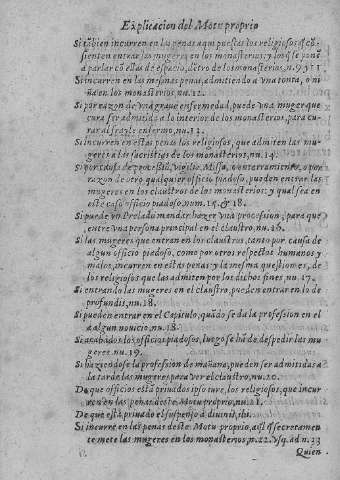 Explicacion del Motu proprio
Si tãbien incurren en las penas aqui puestas los religiosos q̃ cõ-
sienten entrar las mugeres en los monasterios: y los q̃ se ponẽ
a parlar cõ ellas de espacio, dẽtro de los monasterios, n.9. y 11
Si incurren en las mesmas penas, admitiendo a vna tonta, o ni
ña en los monasterios nu.12.
Si por razon de vna graue enfermedad, puede vna muger que
cura ser admitida a lo interior de los monasterios, para cu-
rar al frayle enfermo, nu.13.
Si incurren en estas penas los religiosos, que admiten las mu-
geres a las sacristias de los monasterios, nu.14.
Si por causa de processiõ, vigilia, Missa, o enterramiento, o por
razon de otro qualquier officio piadoso, pueden entrar las
mugeres en los claustros de los monasterios: y qual sea en
este caso officio piadoso, num.15. & 18.
Si puede vn Prelado mandar hazer vna procession, para que
entre vna persona principal en el claustro, nu.16.
Si las mugeres que entran en los claustros, tanto por causa de
algun officio piadoso, como por otros respectos humanos y
malos, incurren en estas penas y la mesma question es, de
los religiosos que las admiten por los dichos fines, nu.17.
Si entrando las mugeres en el claustro, pueden entrar en lo de
profundis, nu.18.
Si pueden entrar en el Capitulo, quãdo se da la profession en el
a algun nouicio, nu.18.
Si acabados los officios piadosos, luego se hã de despedir las mu
geres nu.19.
Si haziendose la profession de mañana, pueden ser admitidas a
la tarde las mugeres para ver el claustro, nu.20.
De que officios estã priuados ipso iure, los religiosos, que incur
ren en las penas deste Motu proprio, nu.21.
De que està priuado el suspenso à diuinis, ibi.
Si incurre en las penas deste Motu proprio, aq̃l q̃ secretamen
te mete las mugeres en los monasterios, n.22. vsq; ad n.23
Quien